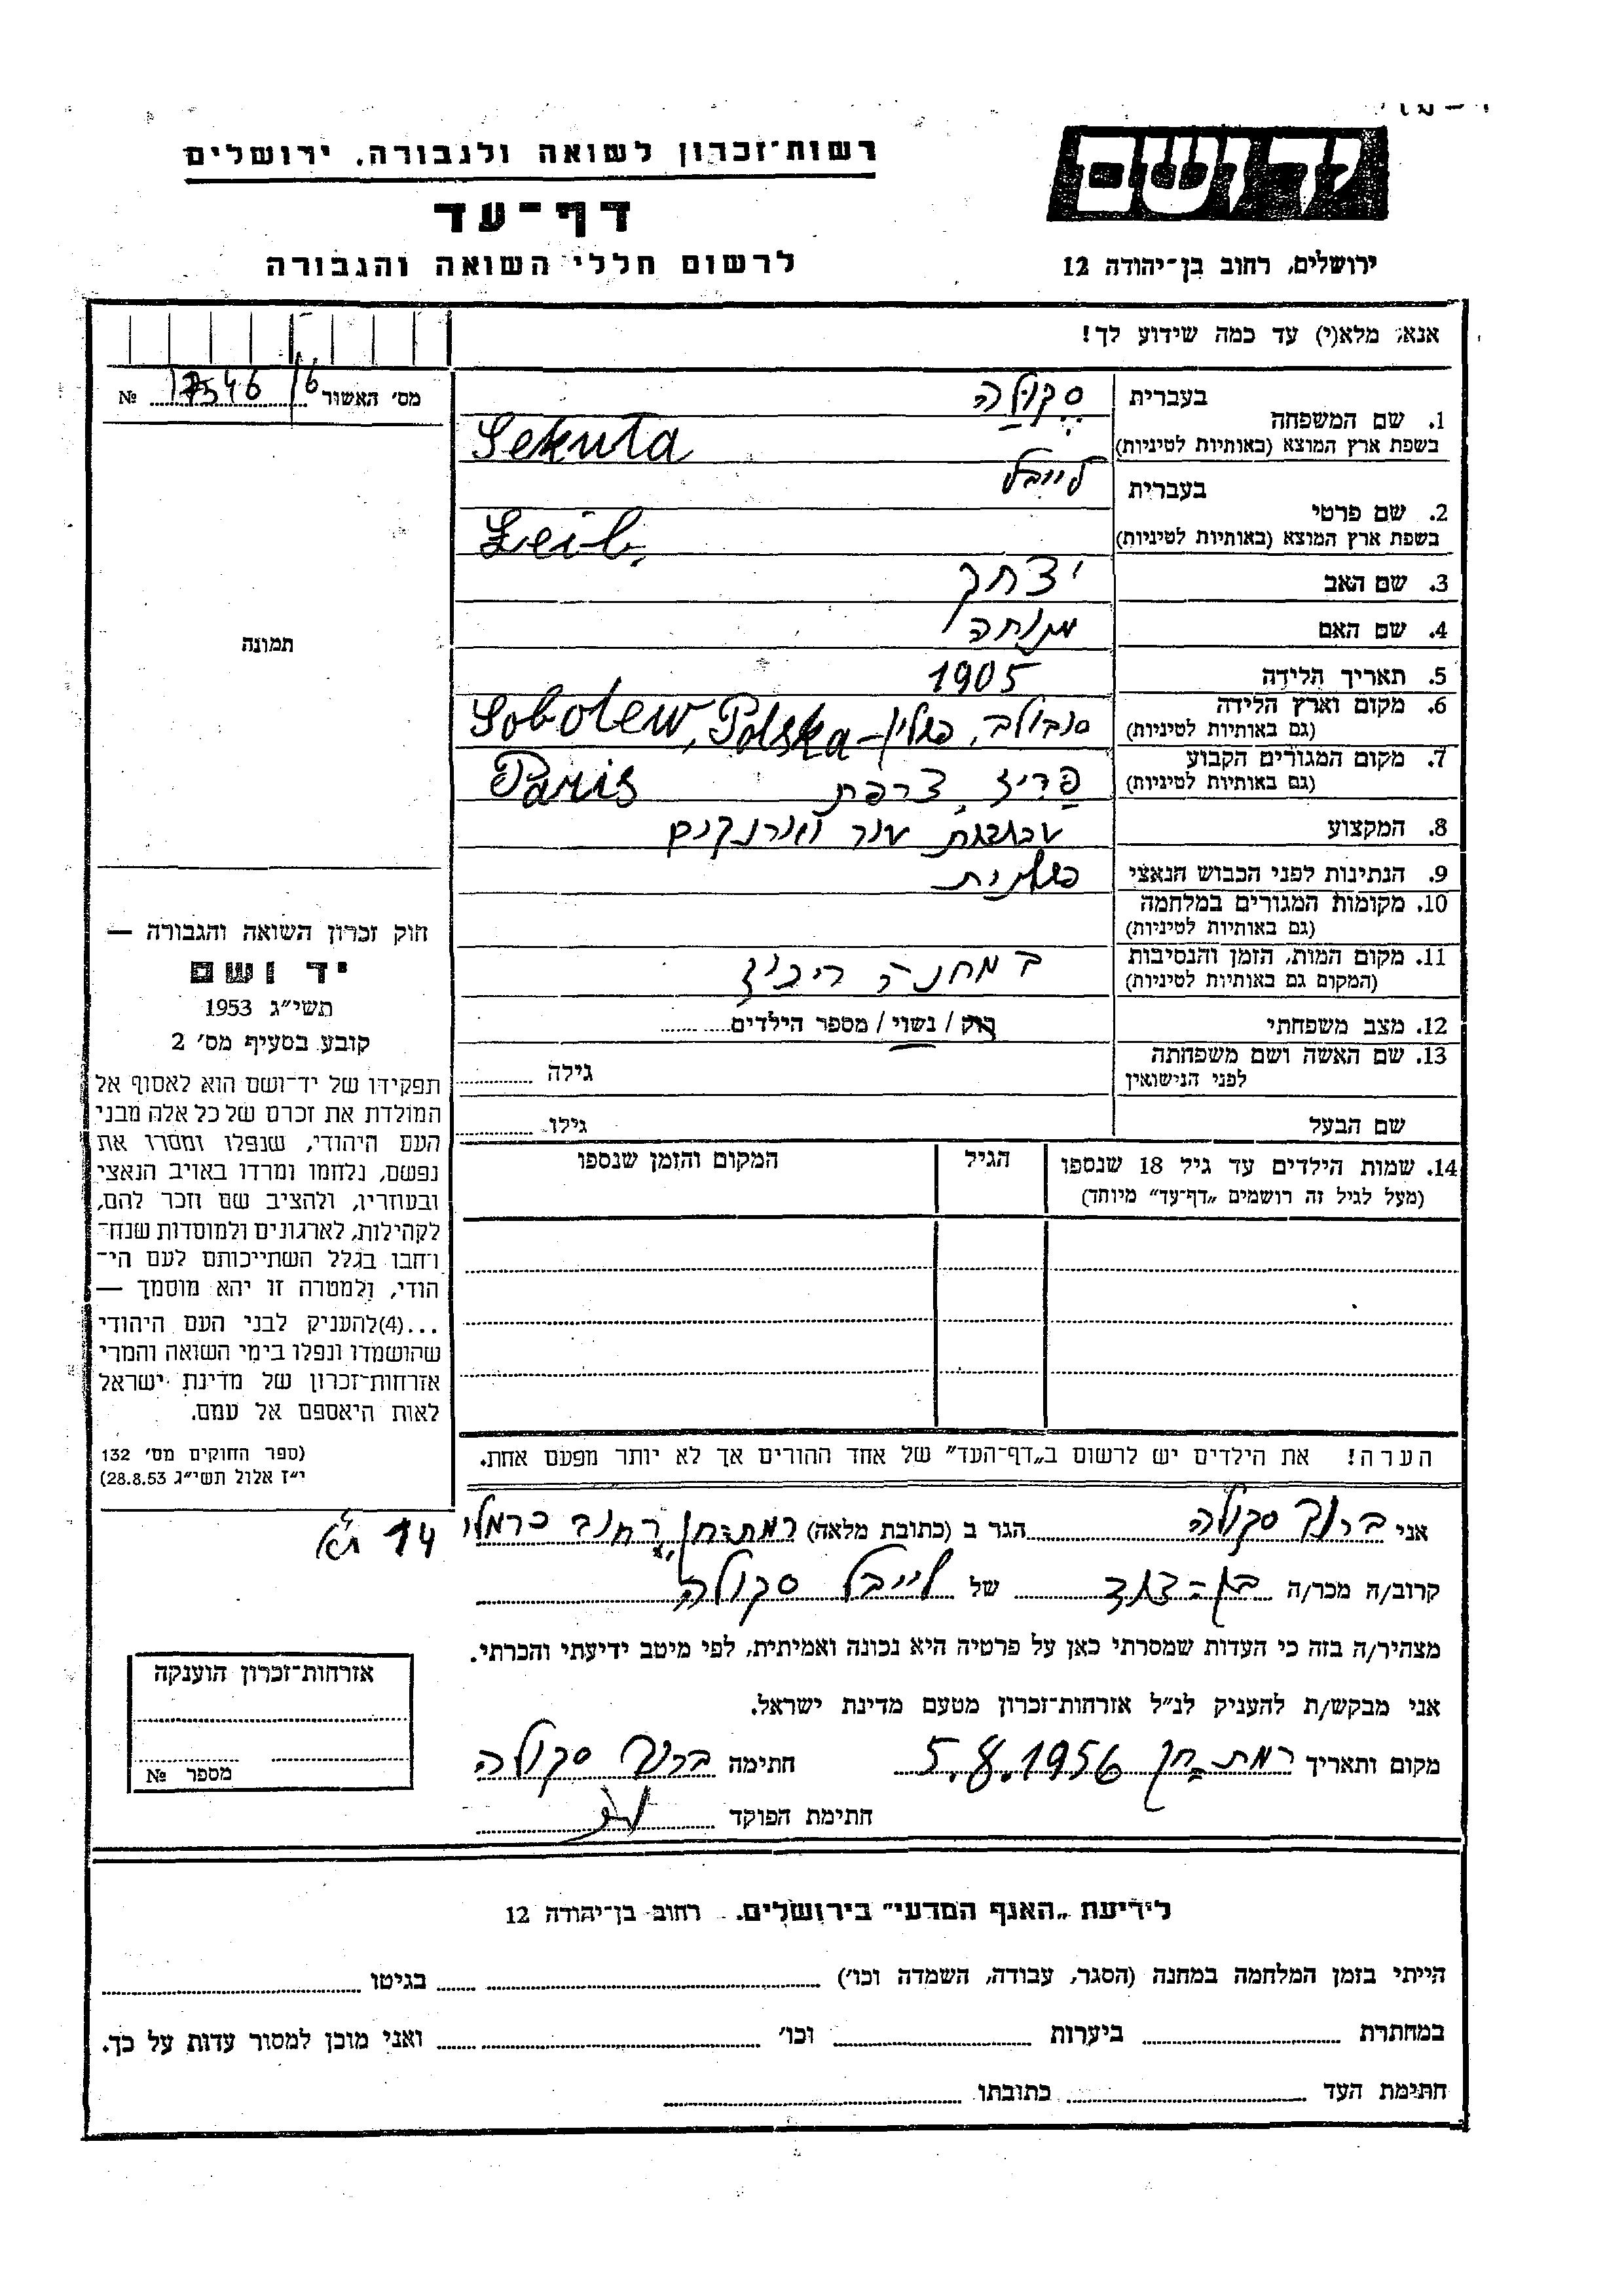 יד ושם
רשות־זכרון לשואה ולגבורה, ירושלים
דף־עד
לרשום חללי השואה והגבורה
ירושלים, רחוב בן־יהודה 12
אנא, מלא(י) עד כמה שידוע לך!
מס' האשור 17546/6 №
1. שם המשפחה
בעברית סקולה
בשפת ארץ המוצא (באותיות לטיניות) Sekuła
2. שם פרטי
בעברית לייבל
בשפת ארץ המוצא (באותיות לטיניות) Leib
3. שם האב יצחק
4. שם האם מנוחה
5. תאריך הלידה 1905
6. מקום וארץ הלידה
(גם באותיות לטיניות) סובולב, פולין – Sobolew, Polska
7. מקום המגורים הקבוע
(גם באותיות לטיניות) פריז, צרפת Paris
8. המקצוע עור וארנקים
9. הנתינות לפני הכבוש הנאצי פולנית
10. מקומות המגורים במלחמה
(גם באותיות לטיניות)
11. מקום המות, הזמן והנסיבות
(המקום גם באותיות לטיניות) במחנה ריכוז
12. מצב משפחתי רוק / נשוי / מספר הילדים
13. שם האשה ושם משפחתה
לפני הנישואין גילה
שם הבעל גילו
14. שמות הילדים עד גיל 18 שנספו הגיל המקום והזמן שנספו
(מעל לגיל זה רושמים „דף־עד” מיוחד)
הערה! את הילדים יש לרשום ב„דף־העד” של אחד ההורים אך לא יותר מפעם אחת.
תמונה
חוק זכרון השואה והגבורה —
יד ושם
תשי״ג 1953
קובע בסעיף מס' 2
תפקידו של יד־ושם הוא לאסוף אל
המולדת את זכרם של כל אלה מבני
העם היהודי, שנפלו ומסרו את
נפשם, נלחמו ומרדו באויב הנאצי
ובעוזריו, ולהציב שם וזכר להם,
לקהילות, לארגונים ולמוסדות שנח־
רחבו בגלל השתייכותם לעם הי־
הודי, ולמטרה זו יהא מוסמך —
...(4)להעניק לבני העם היהודי
שהושמדו ונפלו בימי השואה והמרי
אזרחות־זכרון של מדינת ישראל
לאות היאספם אל עמם.
(ספר החוקים מס' 132
י״ז אלול תשי״ג 28.8.53)
אני ברוך סקולה הגר ב (כתובת מלאה) רמת־גן, רחוב כרמלי 14
קרוב/ה מכר/ה בן־דוד של לייבל סקולה
מצהיר/ה בזה כי העדות שמסרתי כאן על פרטיה היא נכונה ואמיתית, לפי מיטב ידיעתי והכרתי.
אני מבקש/ת להעניק לנ״ל אזרחות־זכרון מטעם מדינת ישראל.
מקום ותאריך רמת גן 5.8.1956 חתימה ברוך סקולה
חתימת הפוקד
אזרחות־זכרון הוענקה
מספר №
לידיעת „האגף המדעי” בירושלים. רחוב בן־יהודה 12
הייתי בזמן המלחמה במחנה (הסגר, עבודה, השמדה וכו') בגיטו
במחתרת ביערות וכו' ואני מוכן למסור עדות על כך.
חתימת העד כתובתו